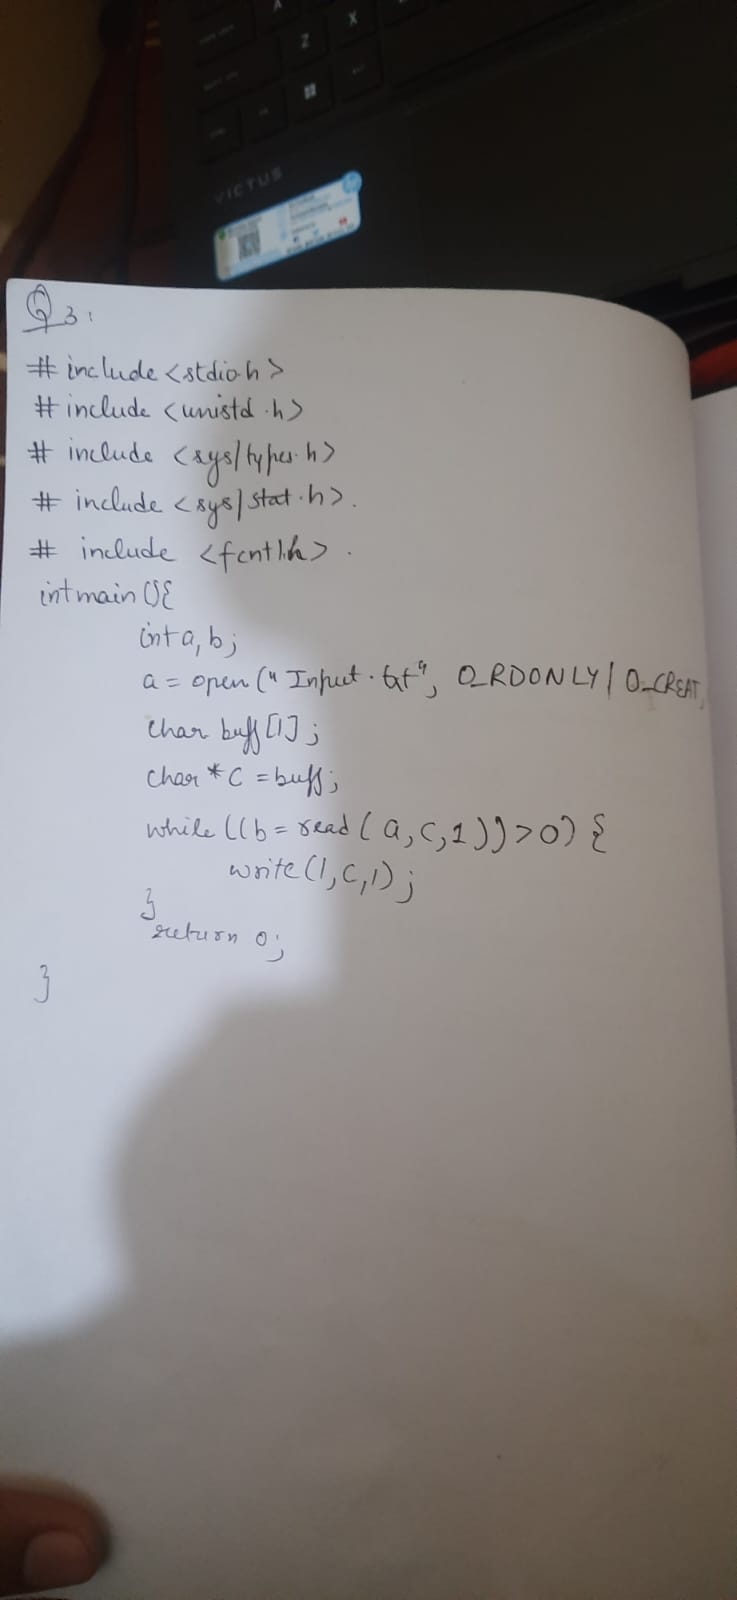 Z
X
VICTUS
hp
Q3:
#include <stdio.h>
#include <unistd.h>
# include <sys/types.h>
# include <sys/stat.h>.
# include <fcntl.h>.
int main(){
int a, b;
a = open("Input.txt", O_RDONLY | O_CREAT,
char buff[1];
char *c = buff;
while ((b = read(a, c, 1)) > 0) {
write(1, c, 1);
}
return 0;
}